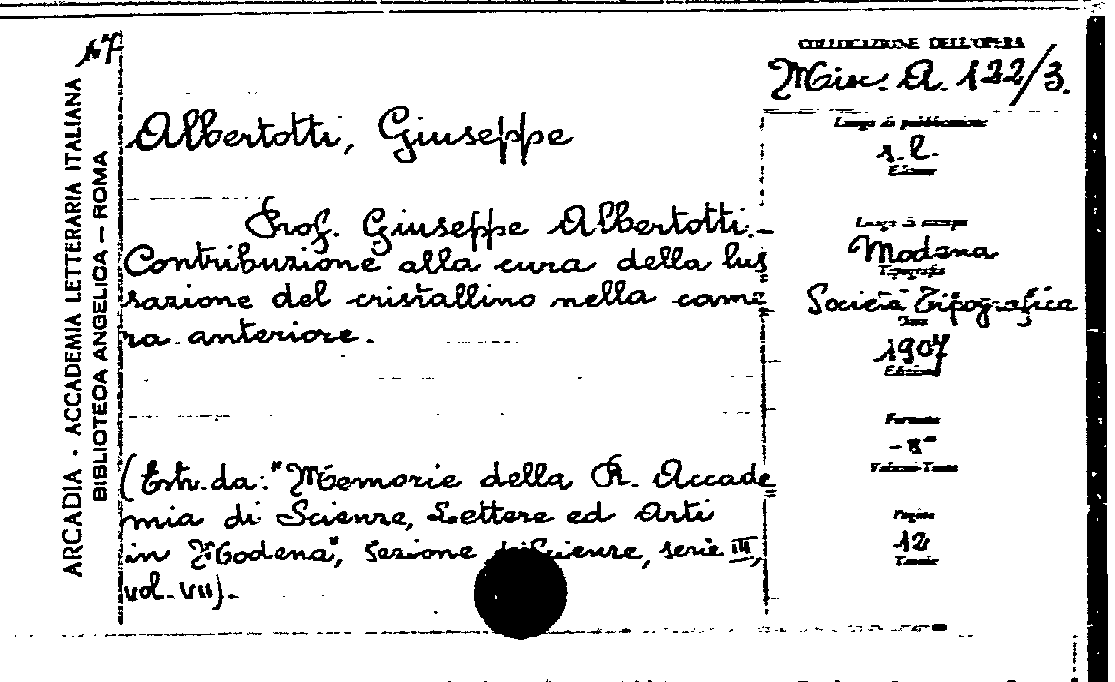 ARCADIA - ACCADEMIA LETTERARIA ITALIANA
BIBLIOTECA ANGELICA — ROMA
COLLOCAZIONE DELL'OPERA
Misc. A. 122/3.
Albertotti, Giuseppe
Luogo di pubblicazione
s. l.
Editore
Prof. Giuseppe Albertotti.-
Contribuzione alla cura della lus
sazione del cristallino nella came
ra anteriore.
Luogo di stampa
Modena
Tipografia
Società Tipografica
Data
1907
Edizione
Formato
- 8°
Volume-Tomo
(Estr. da: "Memorie della R. Accade
mia di Scienze, Lettere ed Arti
in Modena", Sezione Scienze, serie III,
vol. VII).
Pagine
12
Tavole